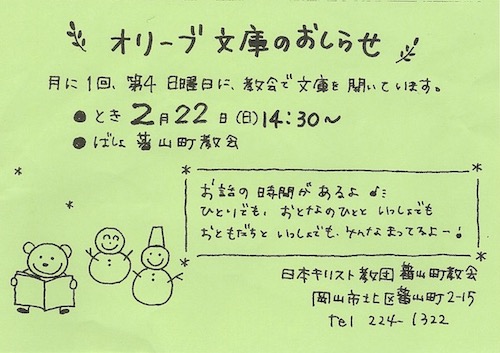 オリーブ文庫のおしらせ
月に1回、第4日曜日に、教会で文庫を開いています。
●とき 2月22日(日)14:30〜
●ばしょ 蕃山町教会
お話の時間があるよ♪
ひとりでも、おとなのひとと いっしょでも
おともだちと いっしょでも、みんなまってるよー!
日本キリスト教団 蕃山町教会
岡山市北区蕃山町2-15
tel 224-1322